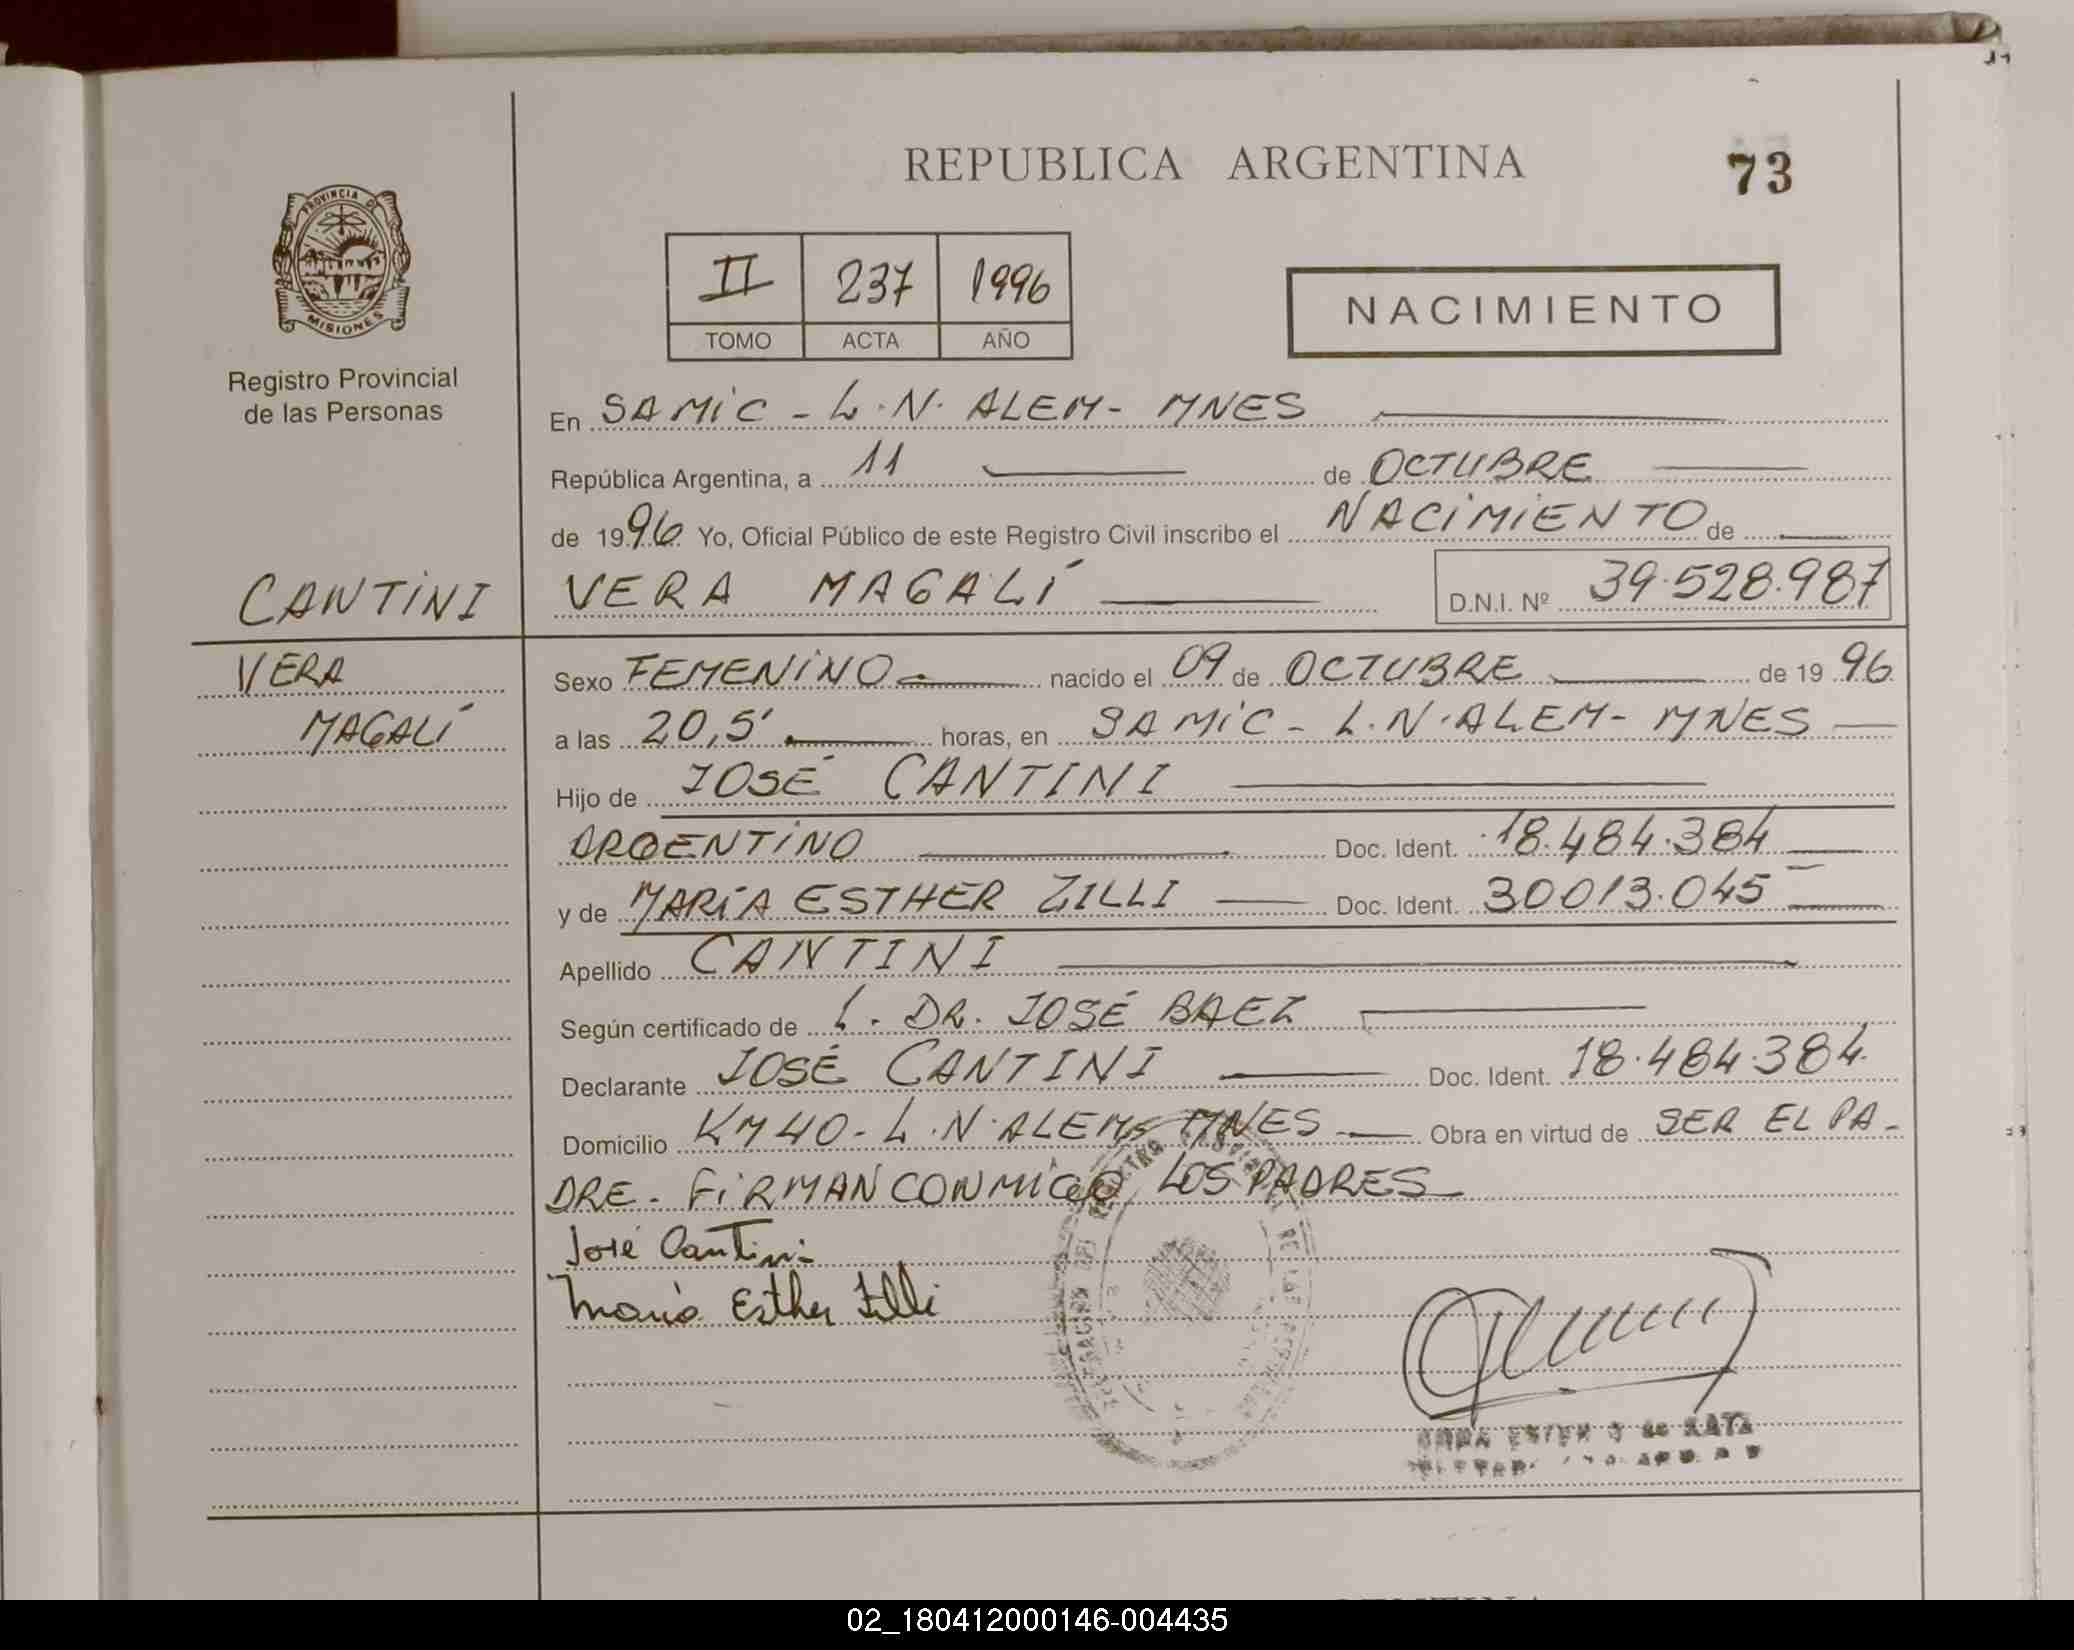 REPUBLICA ARGENTINA
73
PROVINCIA D
MISIONES
Registro Provincial
de las Personas
II 237 1996
TOMO ACTA AÑO
NACIMIENTO
En SAMIC - L.N. ALEM - MNES
República Argentina, a 11 de OCTUBRE
de 1996 Yo, Oficial Público de este Registro Civil inscribo el NACIMIENTO de
CANTINI VERA MAGALÍ D.N.I. Nº 39.528.987
VERA
MAGALÍ
Sexo FEMENINO nacido el 09 de OCTUBRE de 1996
a las 20,5' horas, en SAMIC - L.N. ALEM - MNES
Hijo de JOSÉ CANTINI
ARGENTINO Doc. Ident. 18.484.384
y de MARÍA ESTHER ZILLI Doc. Ident. 30013.045
Apellido CANTINI
Según certificado de L. DR. JOSÉ BAEZ
Declarante JOSÉ CANTINI Doc. Ident. 18.484.384
Domicilio KM 40 - L.N. ALEM - MNES Obra en virtud de SER EL PA-
DRE. FIRMAN CONMIGO LOS PADRES
José Cantini
María Esther Zilli
02_180412000146-004435